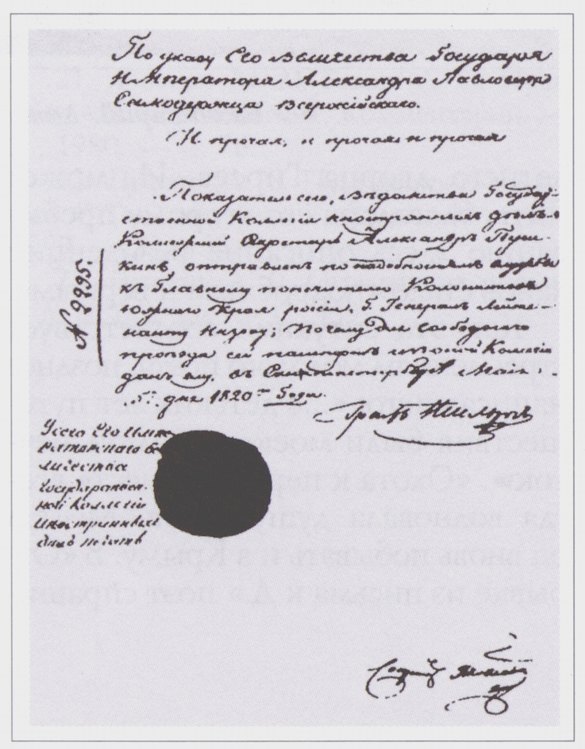 По указу Его Величества Государя
Императора Александра Павловича
Самодержца Всероссійскаго.
И прочая, и прочая, и прочая
Показатель сего, Вѣдомства Государ-
ственной Коллегіи иностранныхъ дѣлъ
Коллежскій Секретарь Александръ Пуш-
кинъ, отправленъ по надобности службы
къ Главному попечителю Колонистовъ
Южнаго Края Россіи, Г. Генералъ Лейте-
нанту Инзову; почему для свободнаго
проѣзда сей пашпортъ изъ оной Коллегіи
данъ ему въ Санктпетербургѣ Маія
5го дня 1820го Года.
Графъ Нессельродъ
№ 2295.
У сего Его Импе-
раторскаго Ве-
личества
Государствен-
ной Коллегіи
иностранныхъ
дѣлъ печать